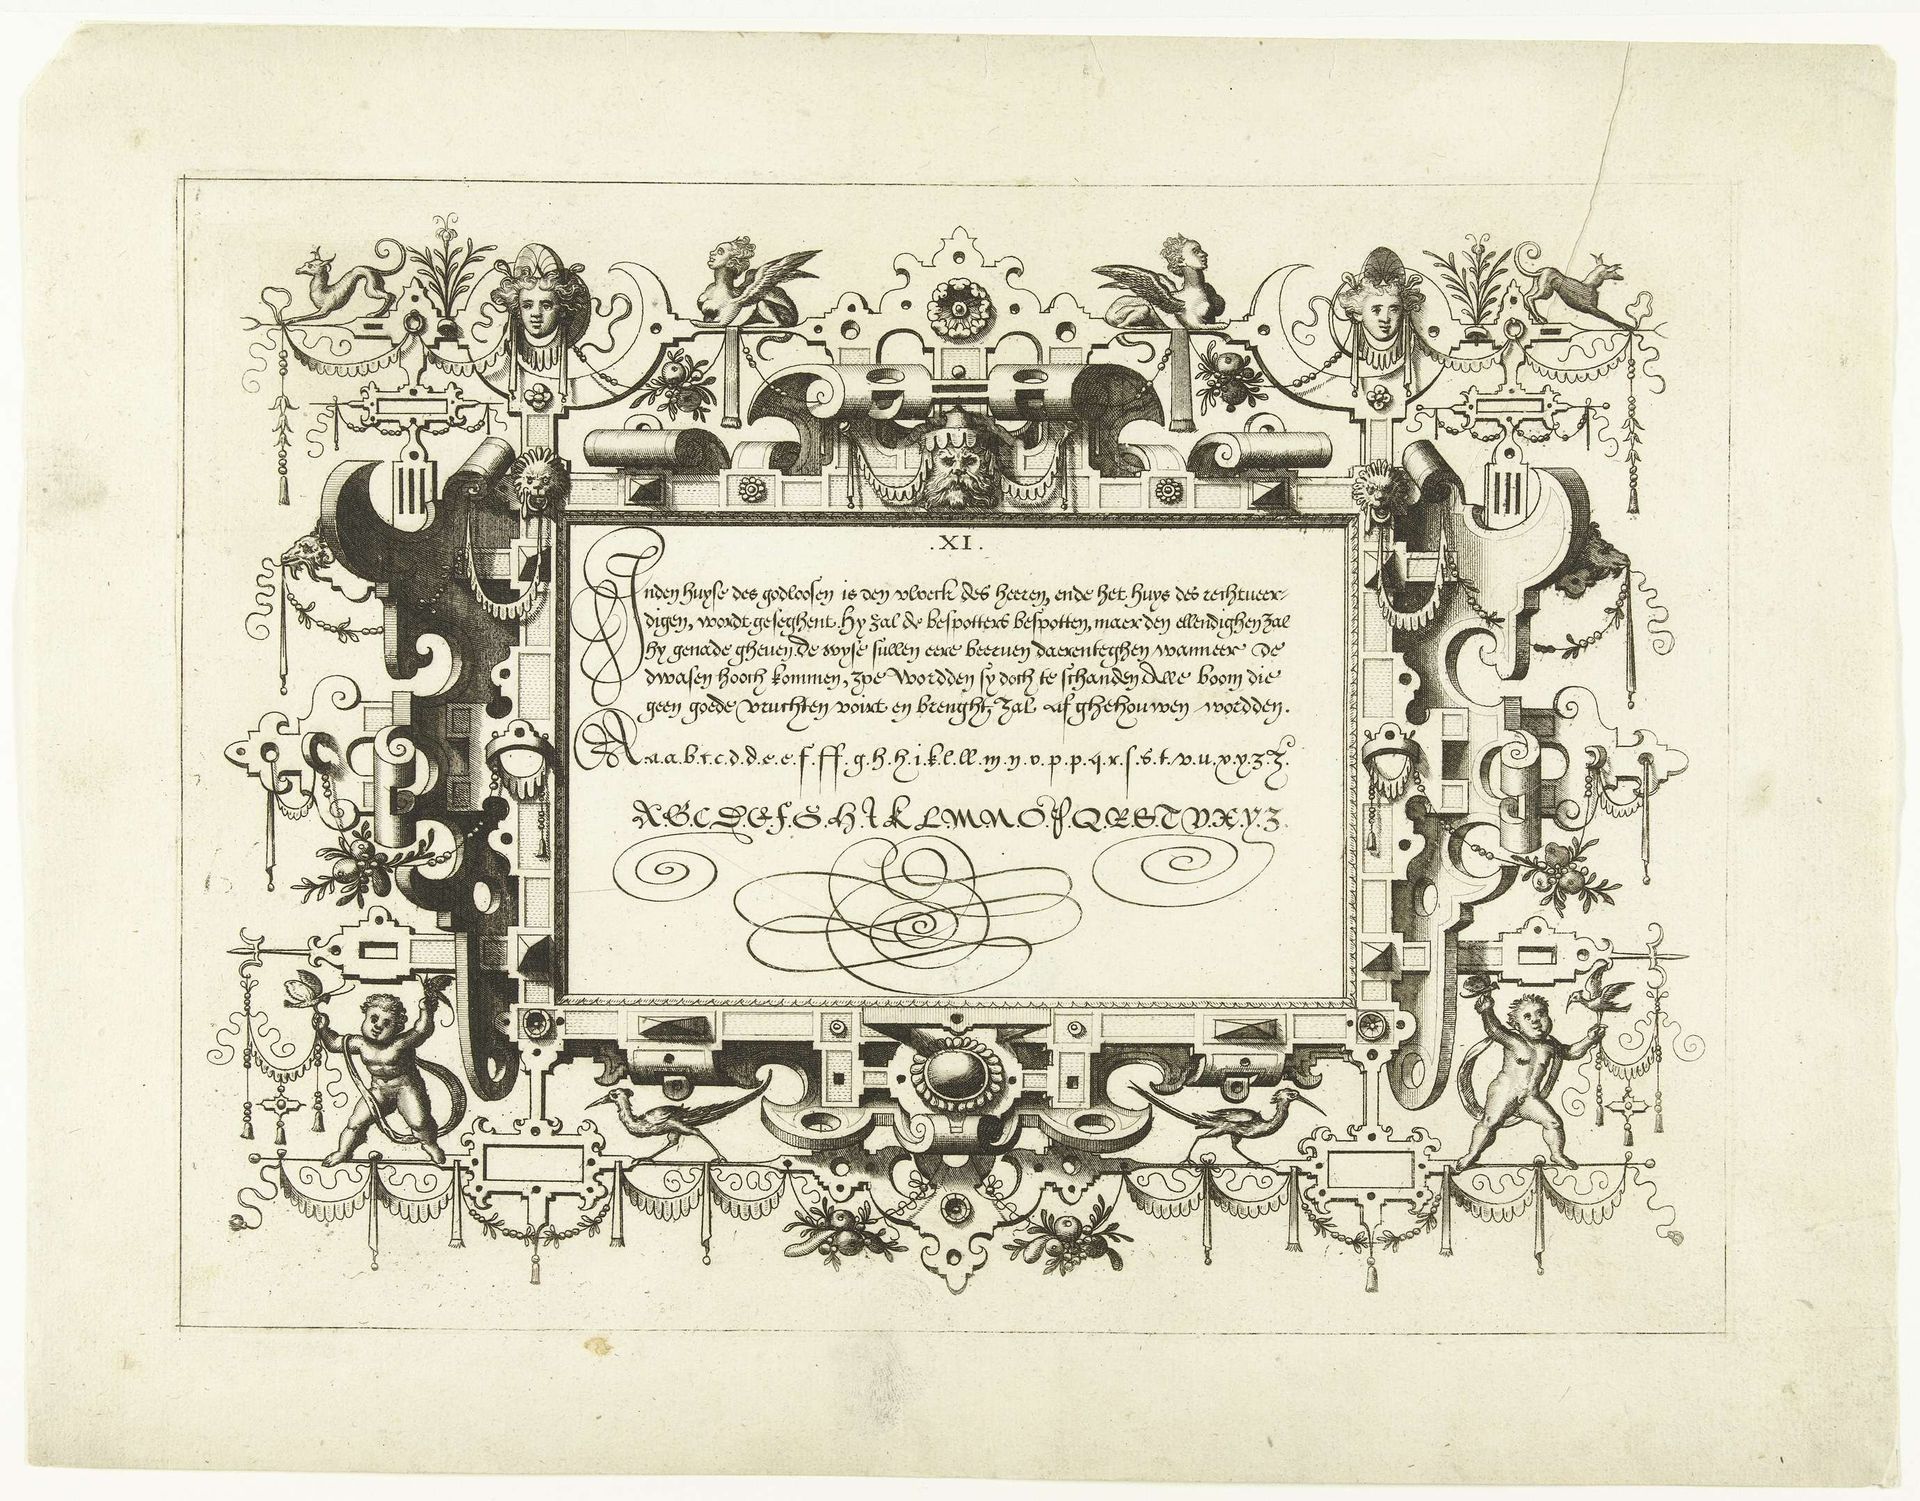 .XI.
Inden huyse des godloosen is den vloeck des heeren, ende het huys des rechtveer-
digen, wordt geseghent. Hy zal de bespotters bespotten, maer den ellendighen zal
hy genade gheven. De wyse sullen eere beerven daerenteghen wanneer de
dwasen hooch kommen, zoe wordden sy doch te schanden Alle boom die
geen goede vruchten voirt en brenght, zal afghehouwen wordden.
A.a.a.b.c.c.d.d.e.e.f.ff.g.h.h.i.k.l.ll.m.n.o.p.p.q.r.ſ.s.t.v.u.x.y.z.z.
A.B.C.D.E.F.G.H.I.K.L.M.N.O.P.Q.R.S.T.V.X.Y.Z.